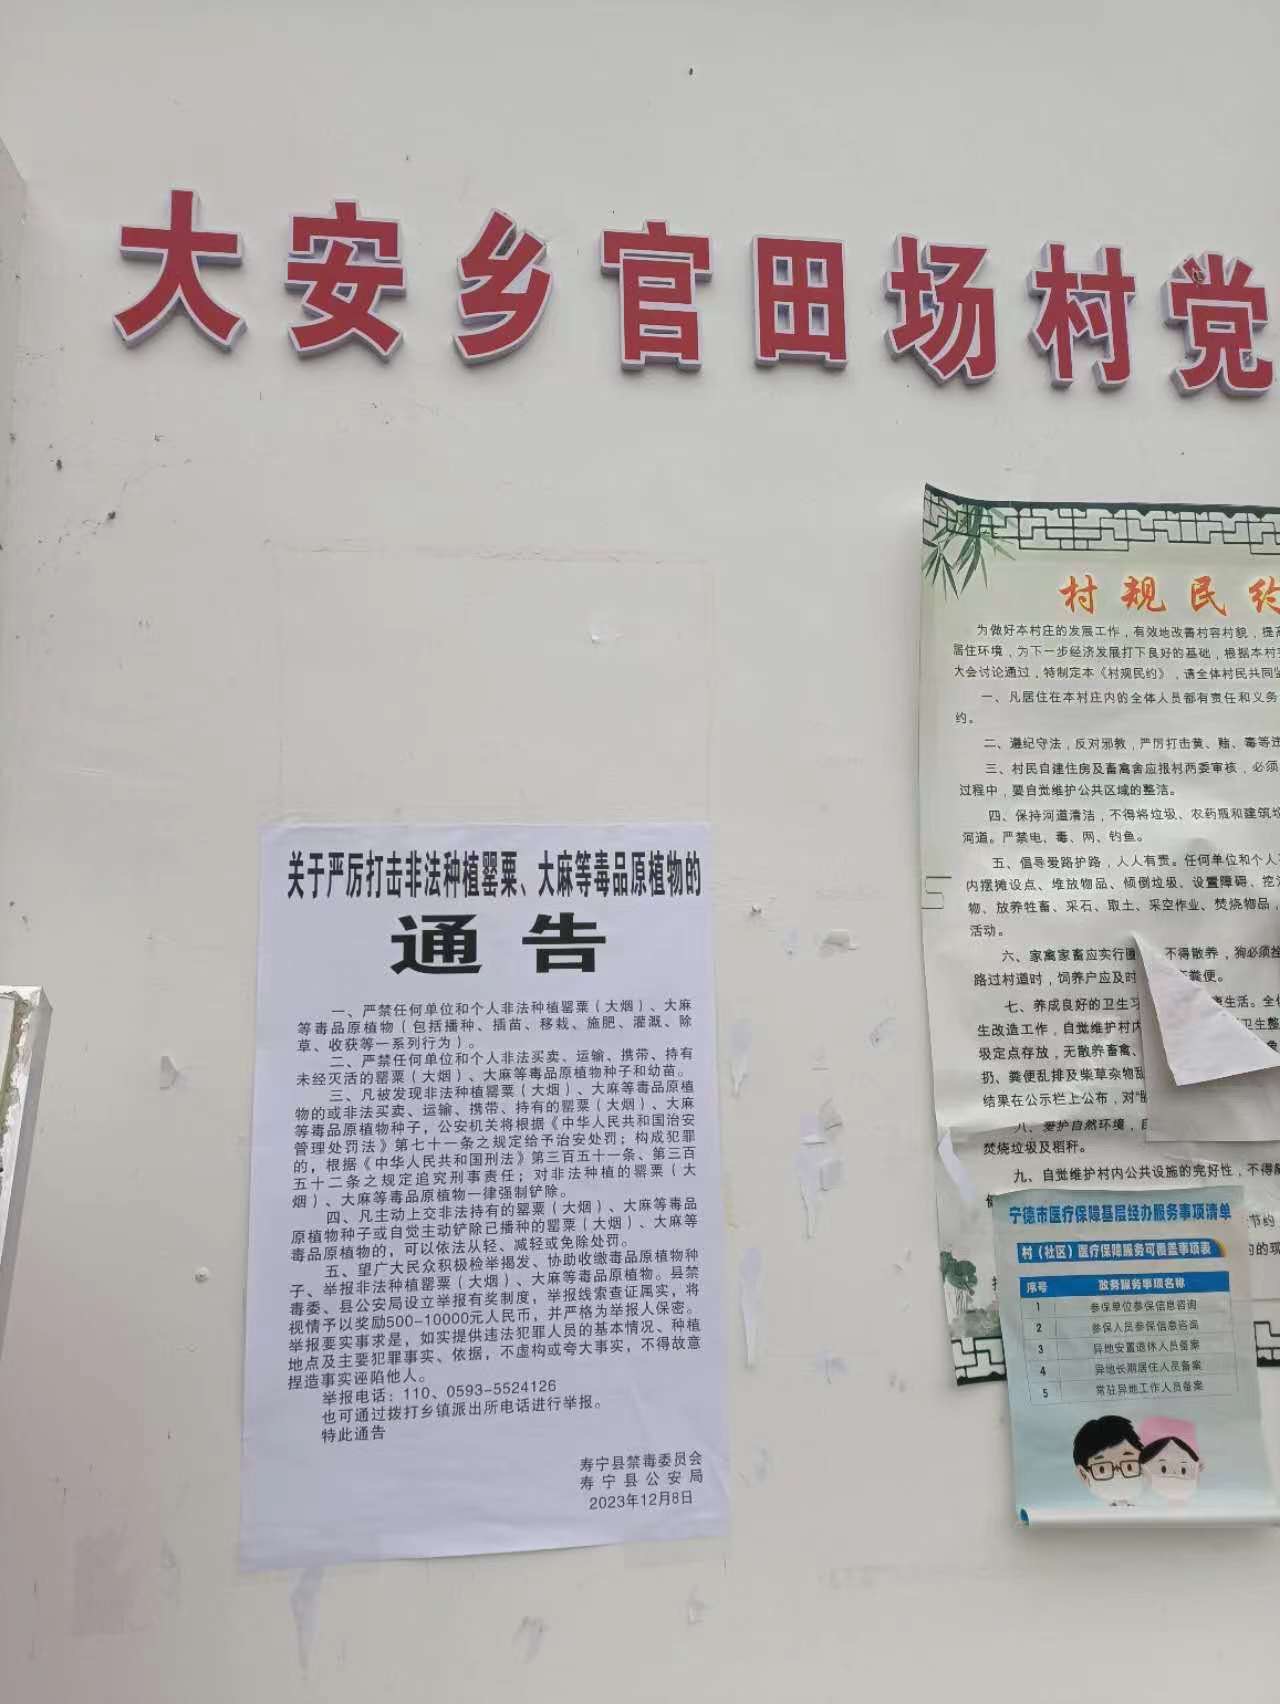 大安乡官田场村党
关于严厉打击非法种植罂粟、大麻等毒品原植物的
通告
一、严禁任何单位和个人非法种植罂粟（大烟）、大麻
等毒品原植物（包括播种、插苗、移栽、施肥、灌溉、除
草、收获等一系列行为）。
二、严禁任何单位和个人非法买卖、运输、携带、持有
未经灭活的罂粟（大烟）、大麻等毒品原植物种子和幼苗。
三、凡被发现非法种植罂粟（大烟）、大麻等毒品原植
物的或非法买卖、运输、携带、持有的罂粟（大烟）、大麻
等毒品原植物种子，公安机关将根据《中华人民共和国治安
管理处罚法》第七十一条之规定给予治安处罚；构成犯罪
的，根据《中华人民共和国刑法》第三百五十一条、第三百
五十二条之规定追究刑事责任；对非法种植的罂粟（大
烟）、大麻等毒品原植物一律强制铲除。
四、凡主动上交非法持有的罂粟（大烟）、大麻等毒品
原植物种子或自觉主动铲除已播种的罂粟（大烟）、大麻等
毒品原植物的，可以依法从轻、减轻或免除处罚。
五、望广大民众积极检举揭发、协助收缴毒品原植物种
子、举报非法种植罂粟（大烟）、大麻等毒品原植物。县禁
毒委、县公安局设立举报有奖制度，举报线索查证属实，将
视情予以奖励500-10000元人民币，并严格为举报人保密。
举报要实事求是，如实提供违法犯罪人员的基本情况、种植
地点及主要犯罪事实、依据，不虚构或夸大事实，不得故意
捏造事实诬陷他人。
举报电话：110、0593-5524126
也可通过拨打乡镇派出所电话进行举报。
特此通告
寿宁县禁毒委员会
寿宁县公安局
2023年12月8日
村规民约
为做好本村庄的发展工作，有效地改善村容村貌，提高
居住环境，为下一步经济发展打下良好的基础，根据本村
大会讨论通过，特制定本《村规民约》，请全体村民共同
一、凡居住在本村庄内的全体人员都有责任和义务
约。
二、遵纪守法，反对邪教，严厉打击黄、赌、毒等
三、村民自建住房及畜禽舍应报村两委审核，必须
过程中，要自觉维护公共区域的整洁。
四、保持河道清洁，不得将垃圾、农药瓶和建筑垃
河道。严禁电、毒、网、钓鱼。
五、倡导爱路护路，人人有责。任何单位和个人
内摆摊设点、堆放物品、倾倒垃圾、设置障碍、挖
物、放养牲畜、采石、取土、采空作业、焚烧物品，
活动。
六、家禽家畜应实行圈 不得散养，狗必须拴
路过村道时，饲养户应及时 粪便。
七、养成良好的卫生习 生活。全
生改造工作，自觉维护村内 卫生整
圾定点存放，无散养畜禽、
扔、粪便乱排及柴草杂物乱
结果在公示栏上公布，对
八、爱护自然环境，
焚烧垃圾及稻秆。
九、自觉维护村内公共设施的完好性，不得
节约
的现
宁德市医疗保障基层经办服务事项清单
村（社区）医疗保障服务可覆盖事项表
序号 政务服务事项名称
1 参保单位参保信息咨询
2 参保人员参保信息咨询
3 异地安置退休人员备案
4 异地长期居住人员备案
5 常驻异地工作人员备案